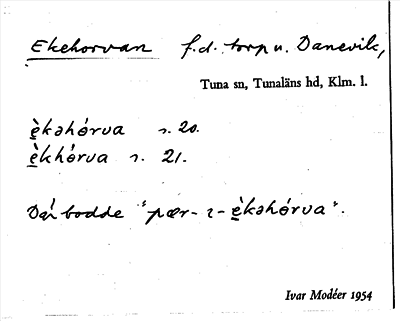 Ekehorvan f.d. torp u. Danevik,
Tuna sn, Tunaläns hd, Klm. l.
ὲ̱kəhǿrva s. 20.
ὲ̱khǿrva s. 21.
Där bodde "pær-ɩ-ὲ̱kəhǿrva".
Ivar Modéer 1954